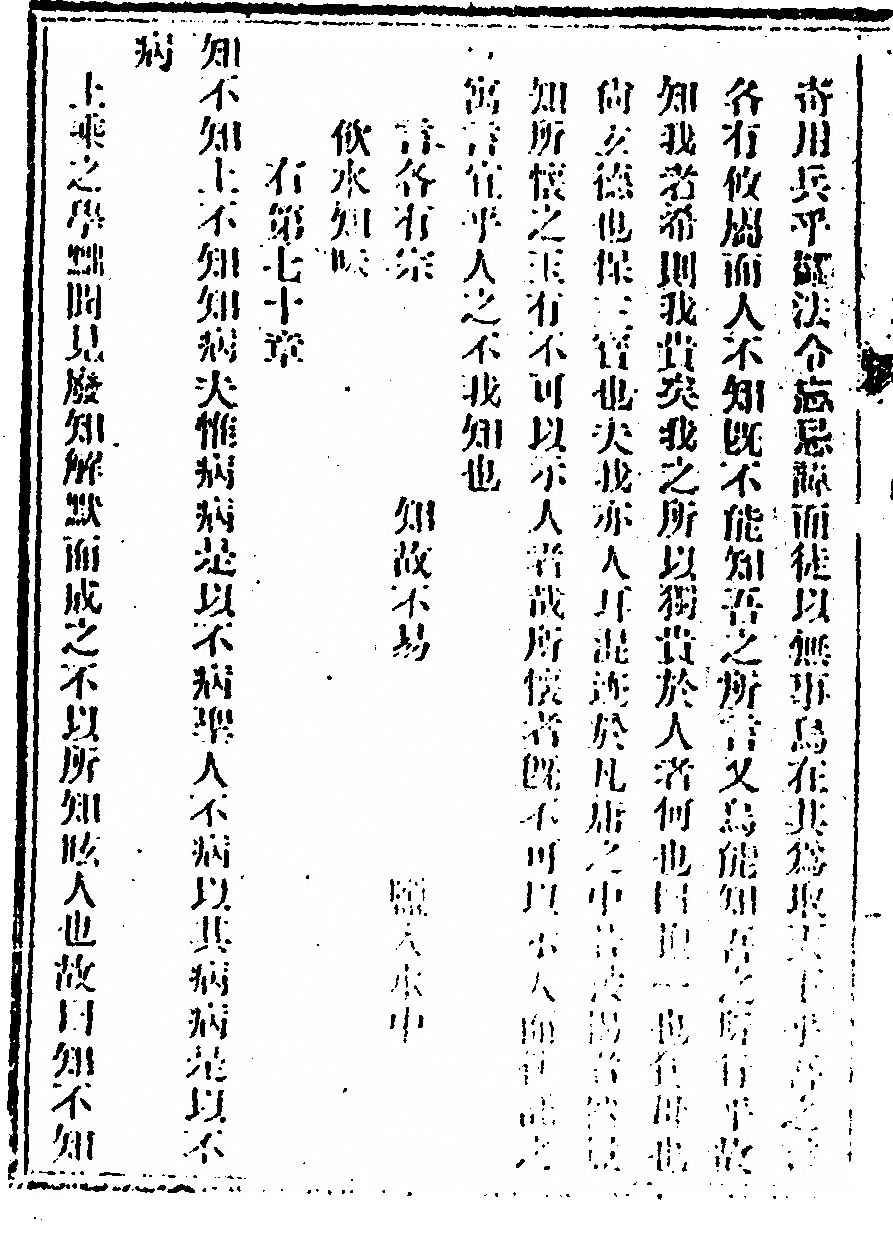 奇用兵乎蠲法令忘忌諱而徒以無事烏在其爲取天下乎吾之言
各有攸屬而人不知既不能知吾之所言又烏能知吾之所行乎故
知我者希則我貴矣我之所以獨貴於人者何也曰抱一也食母也
尚玄德也保三寶也夫我亦人耳混迹於凡庸之中
知所懷之玉有不可以示人者哉所懷者既不可以示人
寓言宜乎人之不我知也
言各有宗 知故不易 鹽入水中
飲水知味
右第七十章
知不知上不知知病夫惟病病是以不病聖人不病以其病病是以不
病
上乘之學黜聞見廢知解默而成之不以所知眩人也故曰知不知